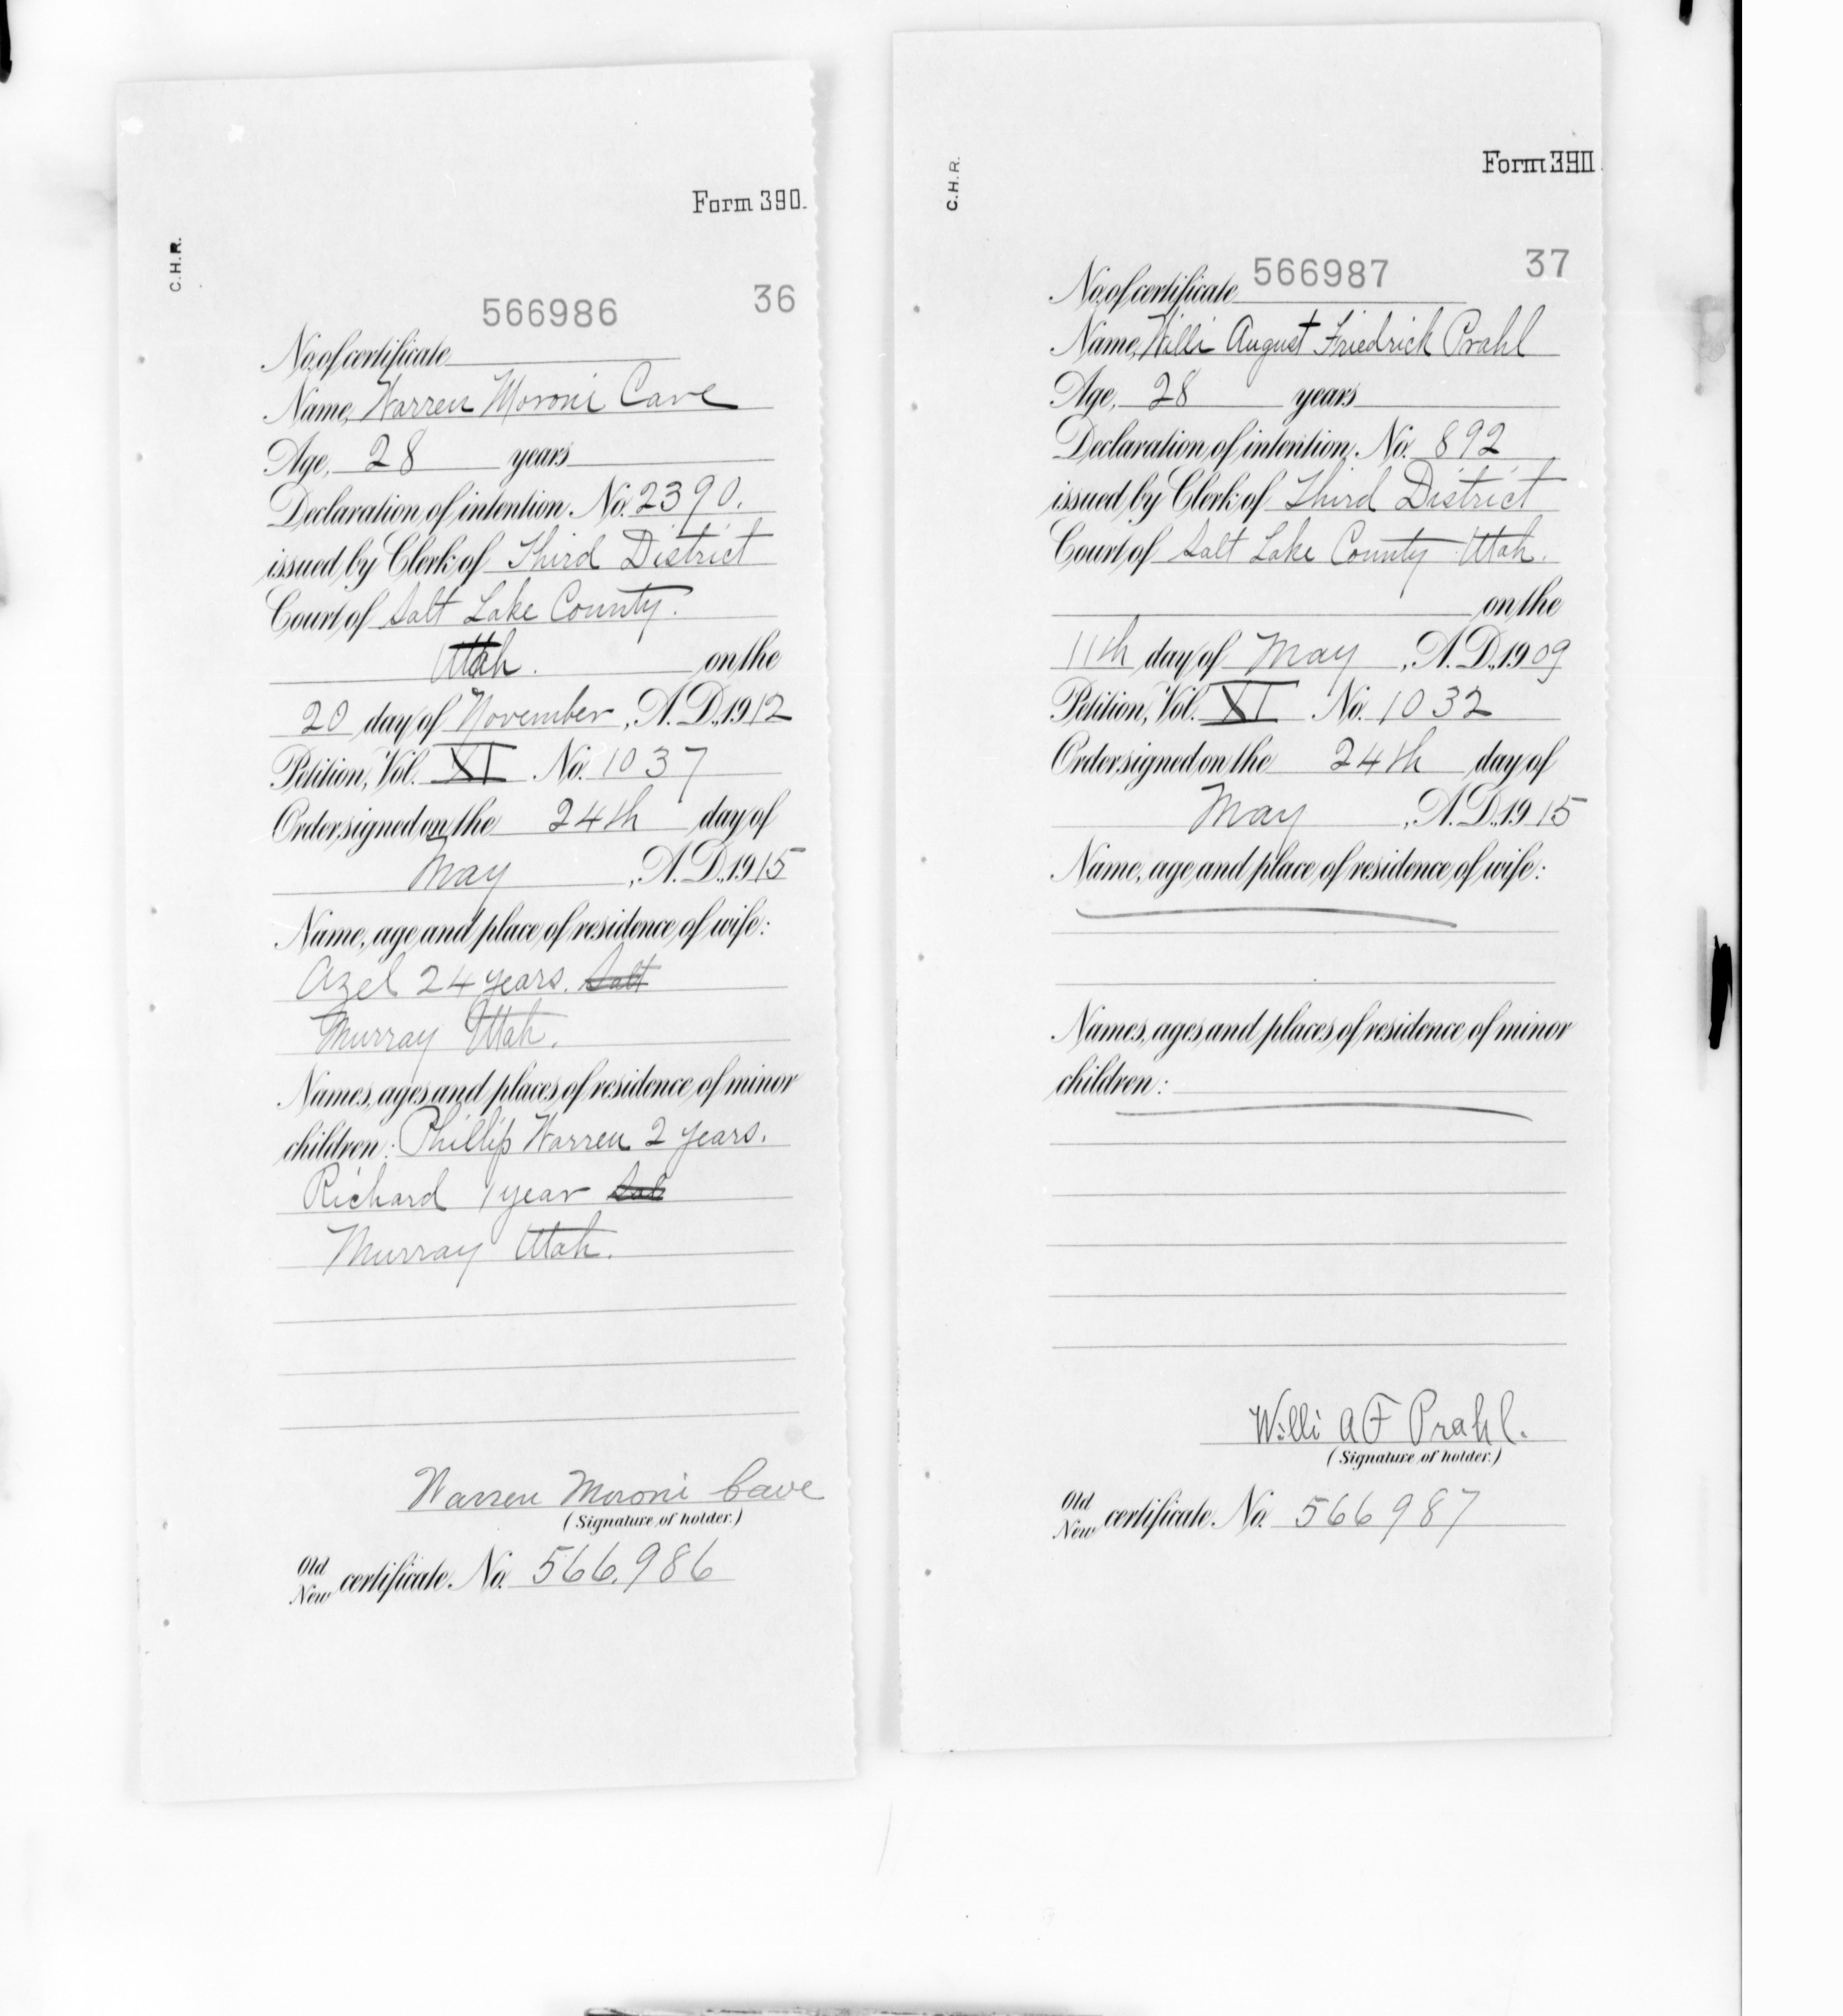 C.H.R.
Form 390.
566986 36
No. of certificate
Name, Warren Moroni Cave
Age, 28 years
Declaration of intention. No. 2390.
issued by Clerk of Third District
Court of Salt Lake County.
Utah. on the
20 day of November, A.D., 1912
Petition, Vol. XI No. 1037
Order signed on the 24th day of
May, A.D., 1915
Name, age and place of residence of wife:
Azel 24 years. Salt
Murray Utah.
Names, ages and places of residence of minor
children: Phillip Warren 2 years.
Richard 1 year Sal
Murray Utah.
Warren Moroni Cave
(Signature of holder.)
Old
New certificate. No. 566,986
C.H.R.
Form 390
566987 37
No. of certificate
Name, Willi August Friedrick Prahl
Age, 28 years
Declaration of intention. No. 892
issued by Clerk of Third District
Court of Salt Lake County Utah.
on the
11th day of May, A.D., 1909
Petition, Vol. XI No. 1032
Order signed on the 24th day of
May, A.D., 1915
Name, age and place of residence of wife:
Names, ages and places of residence of minor
children:
Willi A F Prahl.
(Signature of holder.)
Old
New certificate. No. 566987